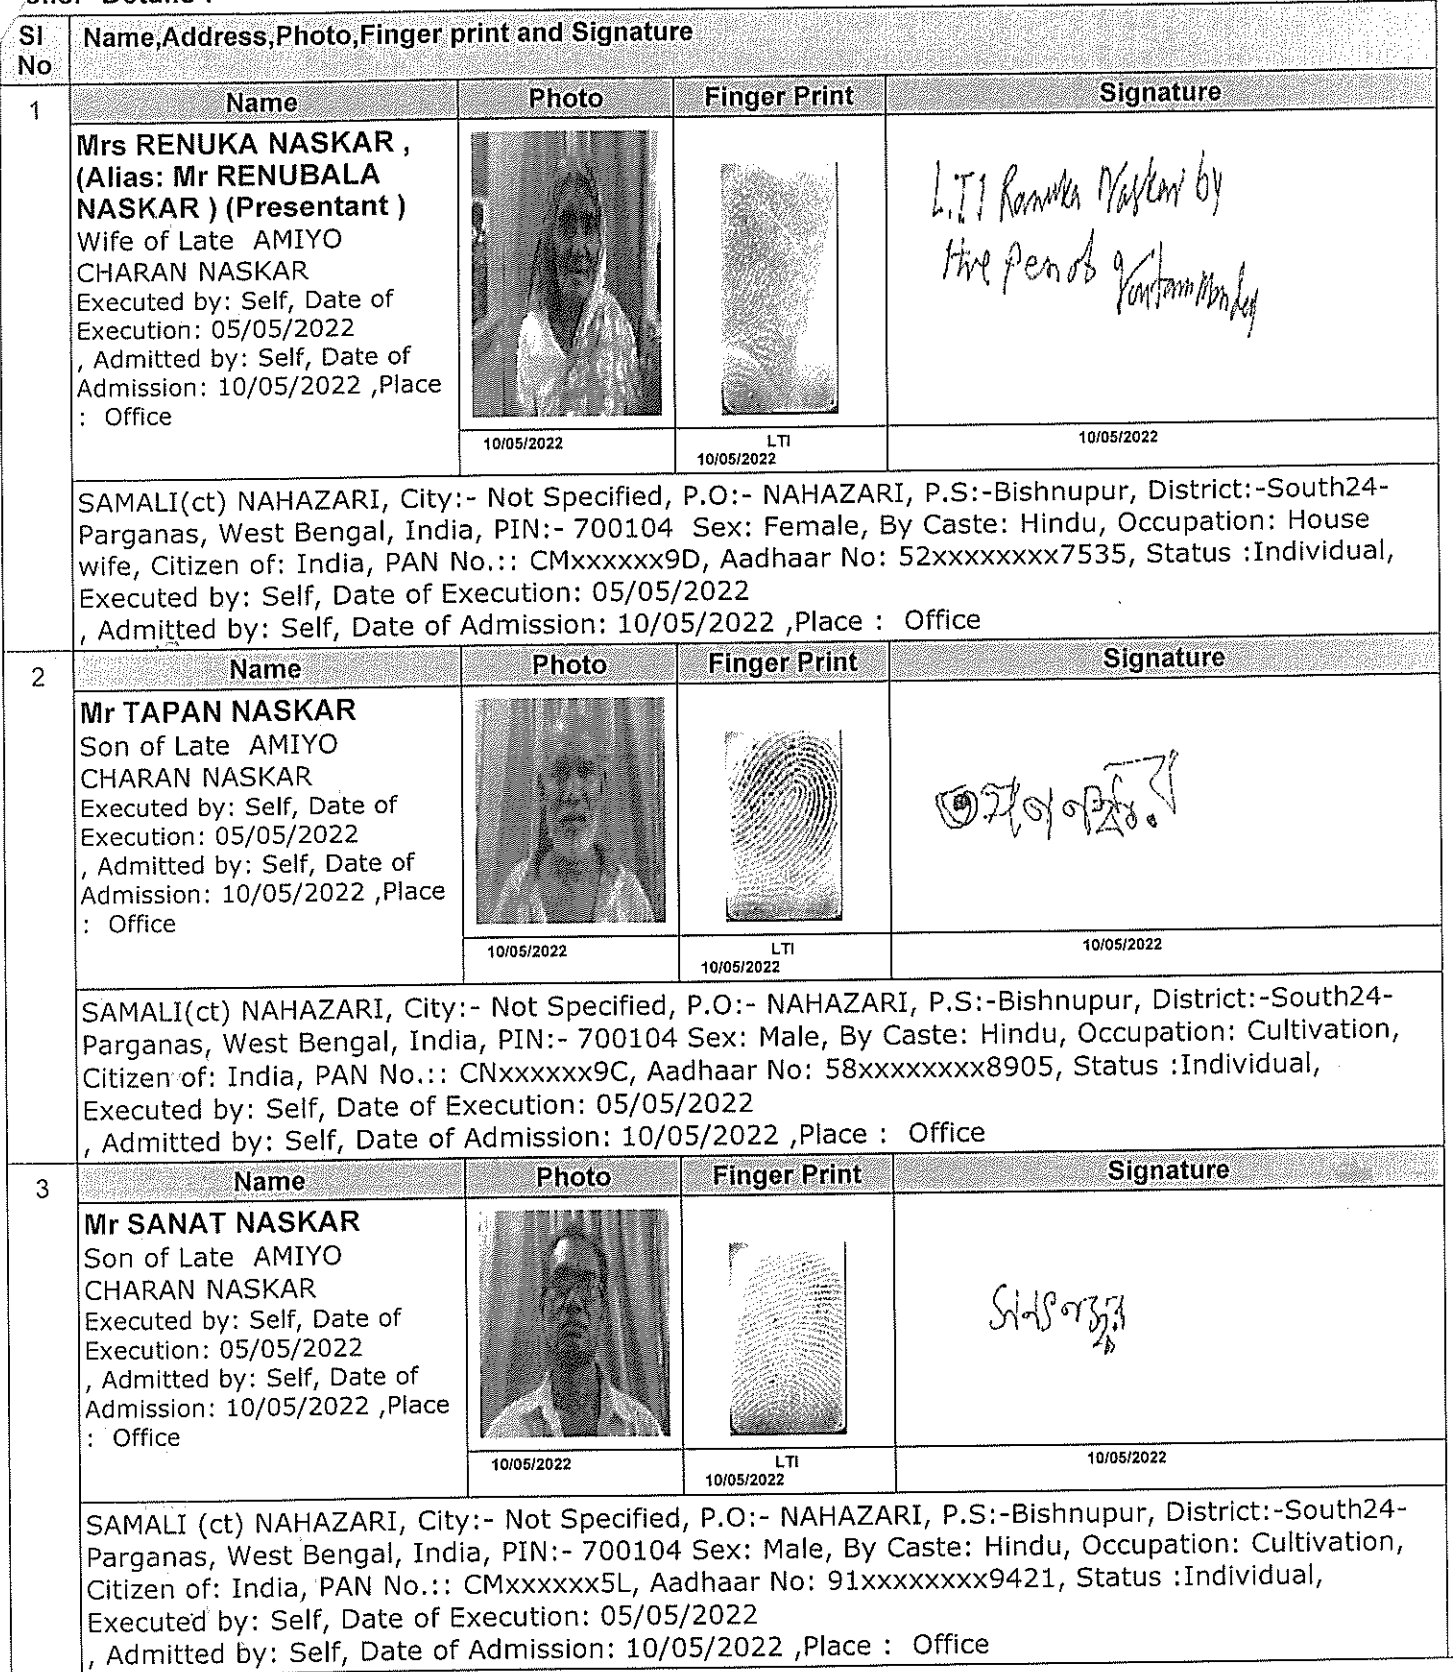 Details :
Sl No
Name,Address,Photo,Finger print and Signature
1
Name Photo Finger Print Signature
Mrs RENUKA NASKAR ,
(Alias: Mr RENUBALA
NASKAR ) (Presentant )
Wife of Late AMIYO
CHARAN NASKAR
Executed by: Self, Date of
Execution: 05/05/2022
, Admitted by: Self, Date of
Admission: 10/05/2022 ,Place
: Office
L.T.I Renuka Naskar by
the Pen of Goutam Mondal
10/05/2022
LTI
10/05/2022
10/05/2022
SAMALI(ct) NAHAZARI, City:- Not Specified, P.O:- NAHAZARI, P.S:-Bishnupur, District:-South24-
Parganas, West Bengal, India, PIN:- 700104 Sex: Female, By Caste: Hindu, Occupation: House
wife, Citizen of: India, PAN No.:: CMxxxxxx9D, Aadhaar No: 52xxxxxxxx7535, Status :Individual,
Executed by: Self, Date of Execution: 05/05/2022
, Admitted by: Self, Date of Admission: 10/05/2022 ,Place : Office
2
Name Photo Finger Print Signature
Mr TAPAN NASKAR
Son of Late AMIYO
CHARAN NASKAR
Executed by: Self, Date of
Execution: 05/05/2022
, Admitted by: Self, Date of
Admission: 10/05/2022 ,Place
: Office
তপন নস্কর
10/05/2022
LTI
10/05/2022
10/05/2022
SAMALI(ct) NAHAZARI, City:- Not Specified, P.O:- NAHAZARI, P.S:-Bishnupur, District:-South24-
Parganas, West Bengal, India, PIN:- 700104 Sex: Male, By Caste: Hindu, Occupation: Cultivation,
Citizen of: India, PAN No.:: CNxxxxxx9C, Aadhaar No: 58xxxxxxxx8905, Status :Individual,
Executed by: Self, Date of Execution: 05/05/2022
, Admitted by: Self, Date of Admission: 10/05/2022 ,Place : Office
3
Name Photo Finger Print Signature
Mr SANAT NASKAR
Son of Late AMIYO
CHARAN NASKAR
Executed by: Self, Date of
Execution: 05/05/2022
, Admitted by: Self, Date of
Admission: 10/05/2022 ,Place
: Office
সনৎ নস্কর
10/05/2022
LTI
10/05/2022
10/05/2022
SAMALI (ct) NAHAZARI, City:- Not Specified, P.O:- NAHAZARI, P.S:-Bishnupur, District:-South24-
Parganas, West Bengal, India, PIN:- 700104 Sex: Male, By Caste: Hindu, Occupation: Cultivation,
Citizen of: India, PAN No.:: CMxxxxxx5L, Aadhaar No: 91xxxxxxxx9421, Status :Individual,
Executed by: Self, Date of Execution: 05/05/2022
, Admitted by: Self, Date of Admission: 10/05/2022 ,Place : Office